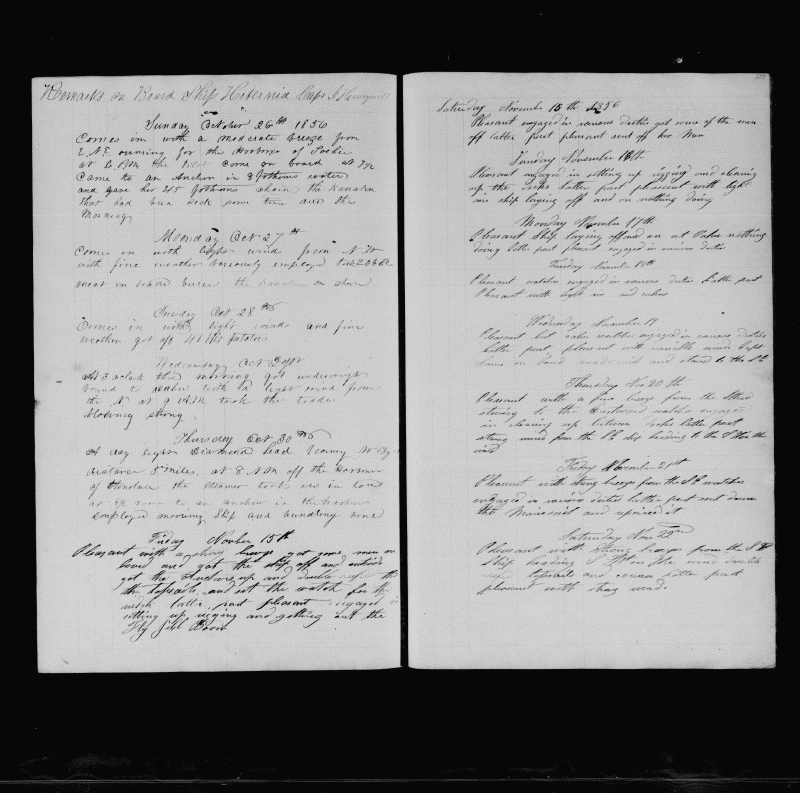 Remarks on Board Ship Hibernia Capt
Sunday October 26th 1856
Comes in with a moderate breeze from
E.N.E. running for the Harbour of
at 6 A.M. the Pilot come on board at 7½
Came to an Anchor in 8 fathoms water
and gave her 45 fathoms chain the Kanaka
that had been sick some time died this
Morning
Monday Oct 27th
Comes in with light wind from N
with fine weather variously employed
meat on board buried the Kanaka on shore
Tuesday Oct 28th
Comes in with light winds and fine
weather got off 41 bbls potatoes
Wednesday Oct 29th
At 3 aclock this morning got underweigh
bound to Oahu with a light wind from
the N at 9 A.M. took the trades
blowing strong
Thursday Oct 30th
At day light Diamond head bearing
distance 5 miles. at 8 A.M. off the Harbour
of Honolulu the steamer took us in tow
at came to an anchor in the harbour
employed mooring Ship and bundling bone
Friday Novber 15th
Pleasant with a strong breeze got some men on
board and got the ship off and outside
got the Anchors up and double reef
the topsails and set the watch for the
night latter part pleasant engaged in
setting up rigging and getting out the
Fly jibb Boom
Saturday November 15th 1856
Pleasant engaged in various duties got some of the men
off latter part pleasant sent off two Men
Sunday November 16th
Pleasant engaged in setting up rigging and clearing
up the decks latter part pleasant with light
airs ship laying off and on nothing doing
Monday November 17th
Pleasant Ship laying off and on at Oahu nothing
doing latter part pleasant engaged in various duties
Tuesday November 18th
Pleasant watches engaged in various duties Latter part
Pleasant with light airs and calms
Wednesday November 19
Pleasant but calm watches engaged in various duties
latter part pleasant with variable winds Capt
came on board made sail and stood to the S.E.
Thursday Nov 20th
Pleasant with a fine breeze from the
steering to the Eastward watches engaged
in clearing up between decks latter part
strong winds from the S.E. ship heading to the S.
wind
Friday November 21st
Pleasant with strong breeze from the S.E. watches
engaged in various duties latter part sent down
the Mainsail and repaired it
Saturday Nov 22
Pleasant with strong breezes from the S.E.
Ship heading on the wind double
reef topsails and courses latter part
pleasant with strong winds